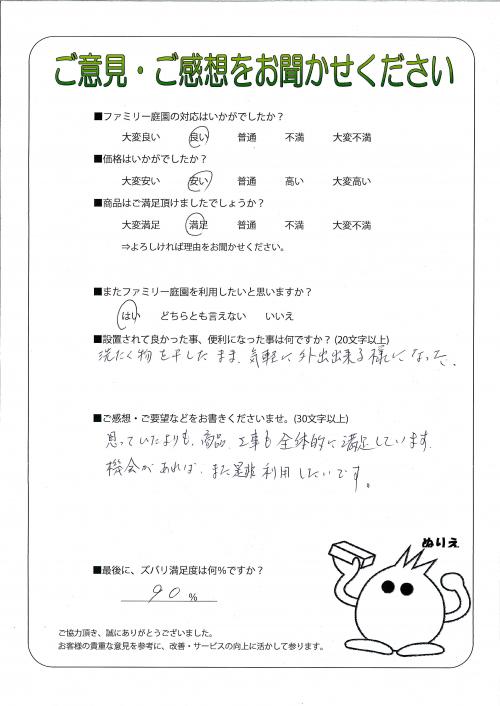 ご意見・ご感想をお聞かせください
■ファミリー庭園の対応はいかがでしたか？
大変良い 良い 普通 不満 大変不満
■価格はいかがでしたか？
大変安い 安い 普通 高い 大変高い
■商品はご満足頂けましたでしょうか？
大変満足 満足 普通 不満 大変不満
⇒よろしければ理由をお聞かせください。
■またファミリー庭園を利用したいと思いますか？
はい どちらとも言えない いいえ
■設置されて良かった事、便利になった事は何ですか？(20文字以上)
洗たく物を干したまま、気軽に外出出来る様になった、
■ご感想・ご要望などをお書きくださいませ。(30文字以上)
思っていたよりも、商品、工事も全体的に満足しています。
機会があれば、また是非利用したいです。
ぬりえ
■最後に、ズバリ満足度は何％ですか？
90 %
ご協力頂き、誠にありがとうございました。
お客様の貴重な意見を参考に、改善・サービスの向上に活かして参ります。